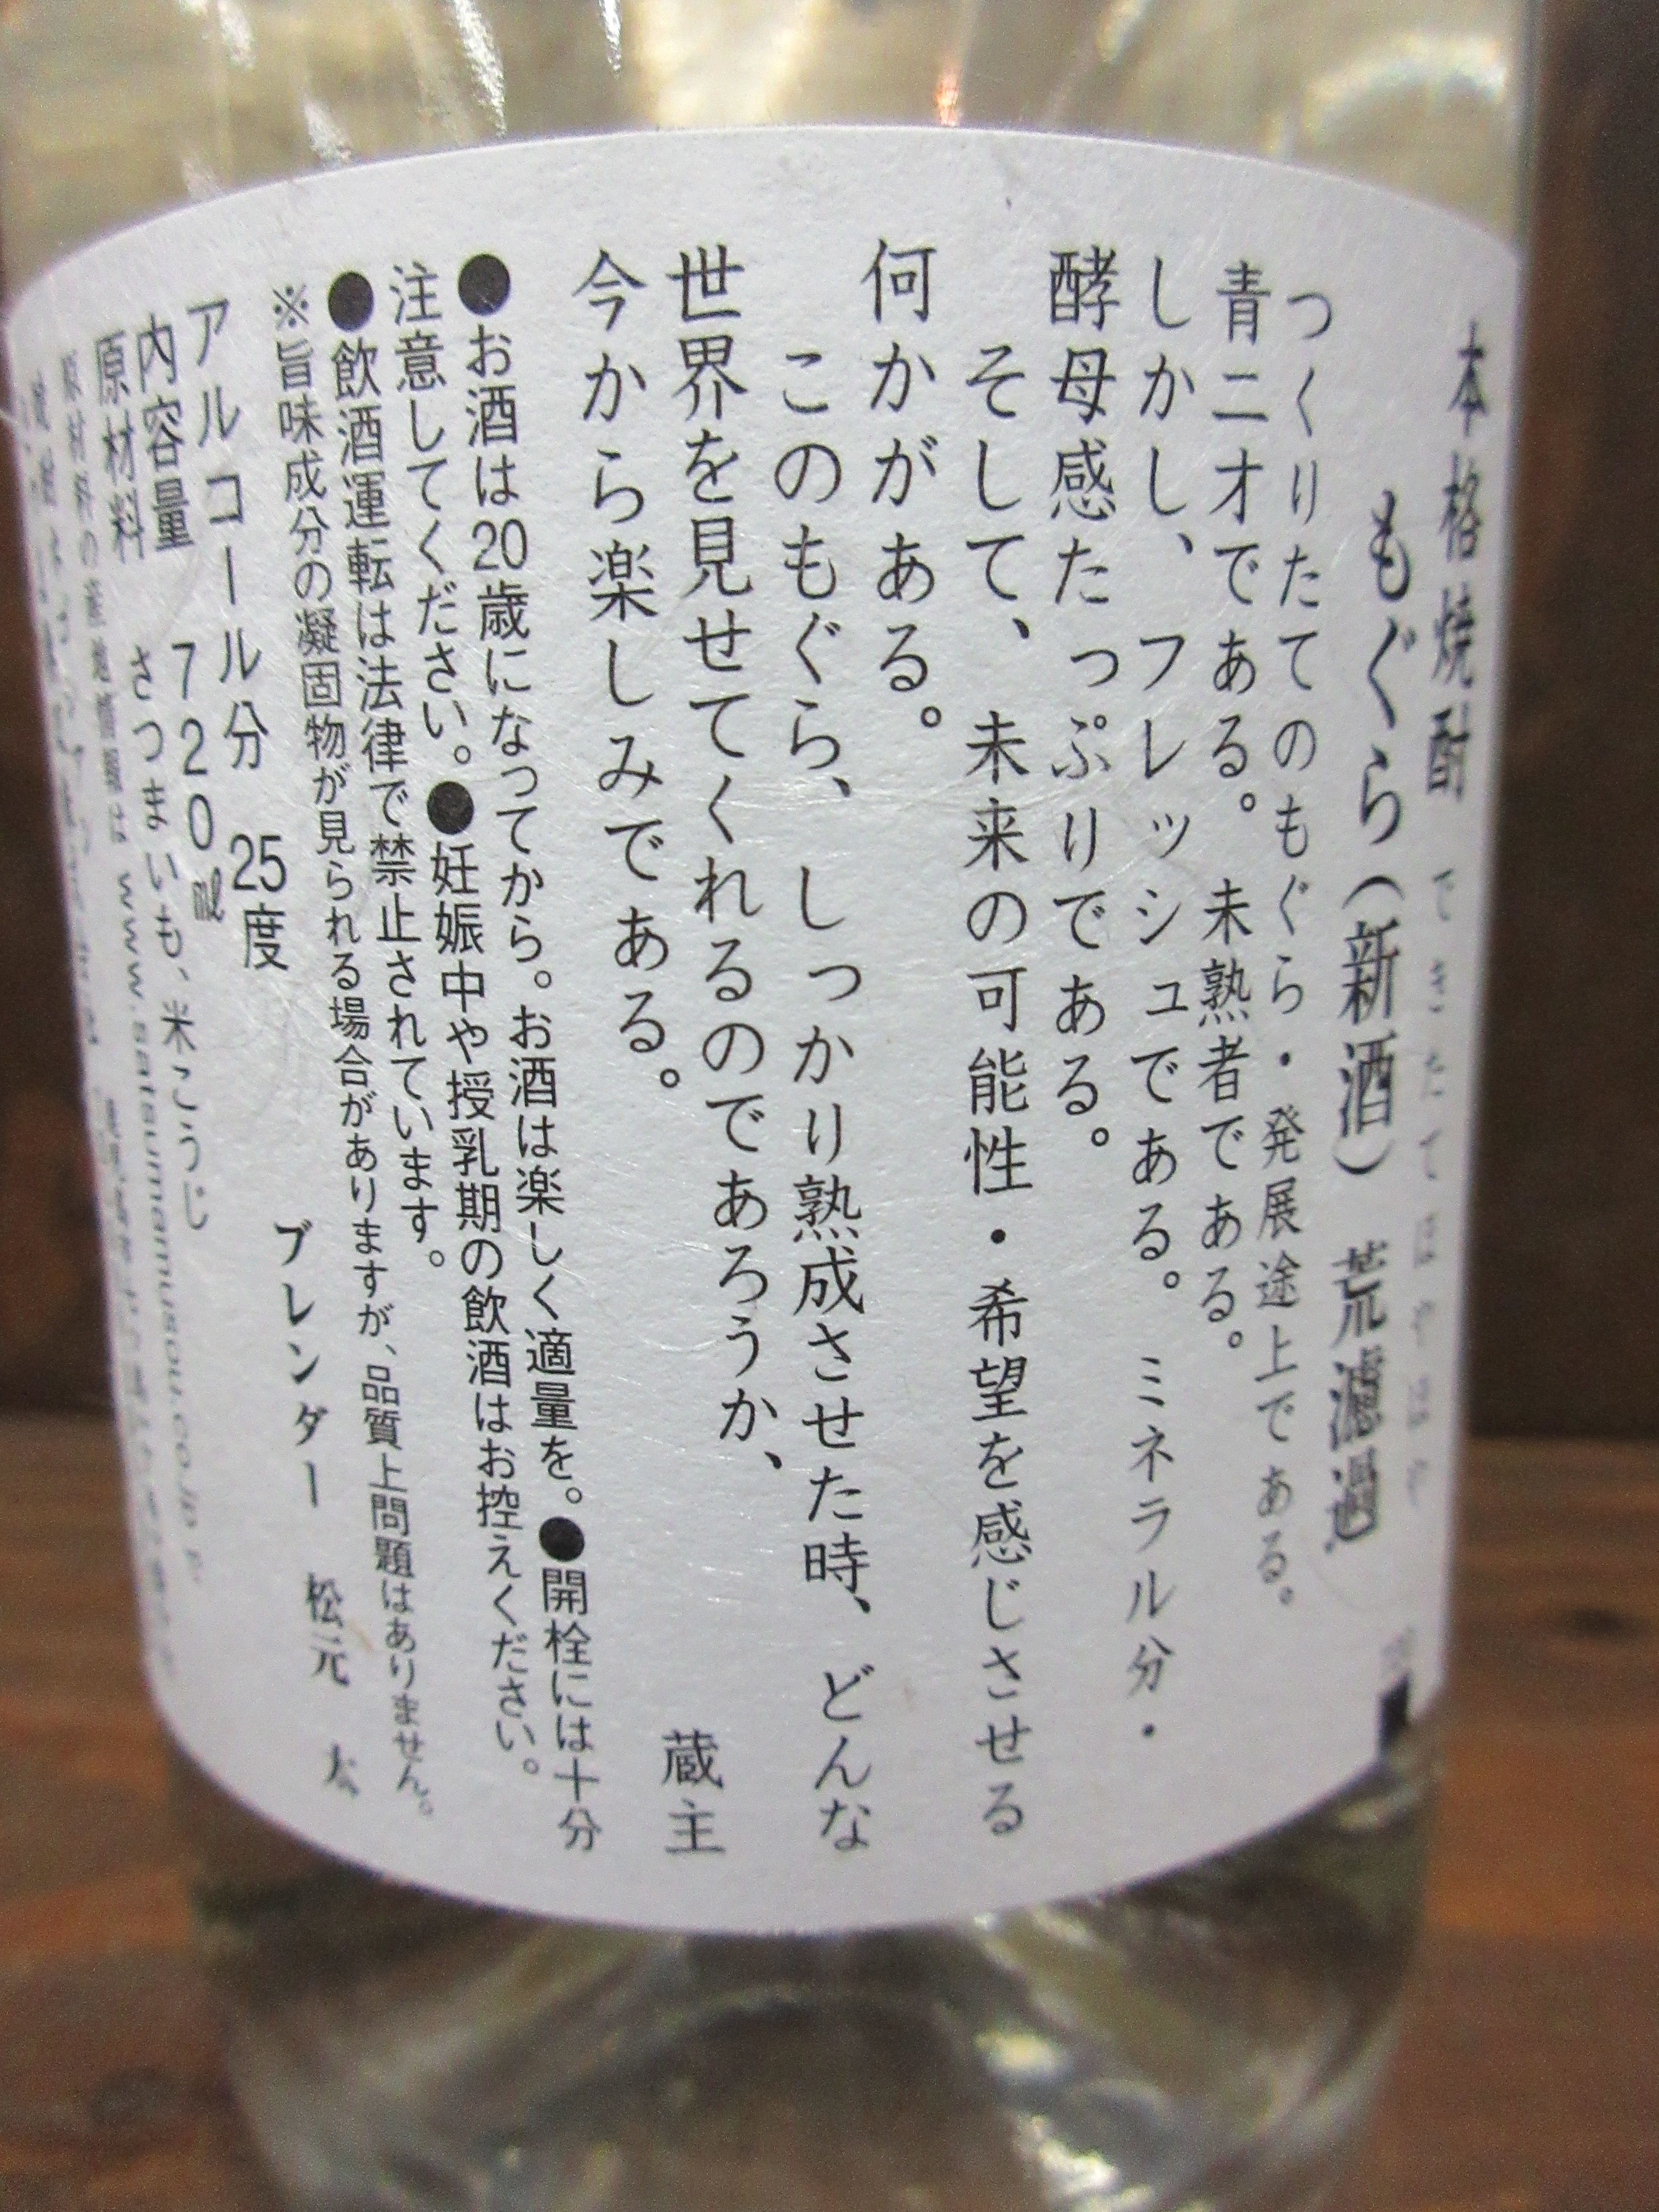 本格焼酎
できたてほやほや
もぐら(新酒) 荒濾過
つくりたてのもぐら・発展途上である。
青二才である。未熟者である。
しかし、フレッシュである。ミネラル分・
酵母感たっぷりである。
そして、未来の可能性・希望を感じさせる
何かがある。
このもぐら、しっかり熟成させた時、どんな
世界を見せてくれるのであろうか、
今から楽しみである。
蔵主
●お酒は20歳になってから。お酒は楽しく適量を。●開栓には十分
注意してください。●妊娠中や授乳期の飲酒はお控えください。
●飲酒運転は法律で禁止されています。
※旨味成分の凝固物が見られる場合がありますが、品質上問題はありません。
ブレンダー 松元 太
アルコール分 25度
内容量 720㎖
原材料 さつまいも、米こうじ